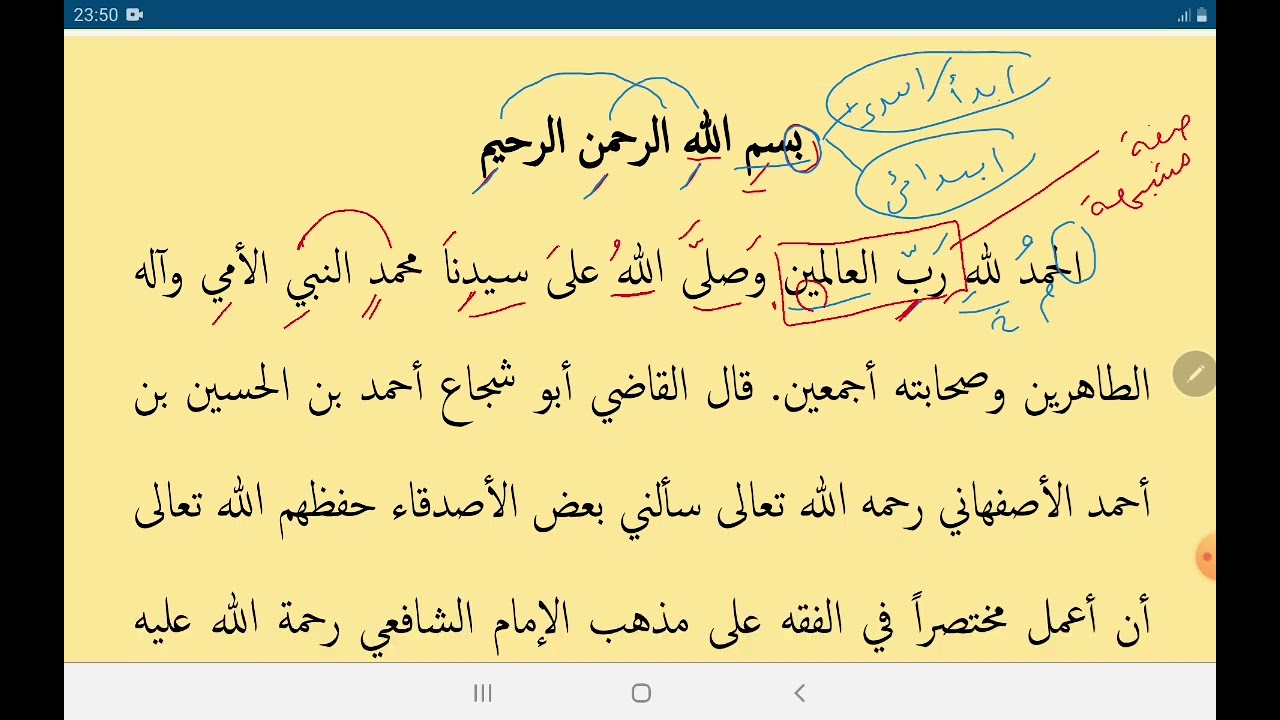 23:50
ابدأ/
بسم الله الرحمن الرحيم
صفة
مشبهة
الحمدُ لله رَبّ العالمين وَصلىَّ اللهُ علىَ سيدِناَ محمدٍ النبيِ الأميِ وآله
م
خ
الطاهرين وصحابته أجمعين. قال القاضي أبو شجاع أحمد بن الحسين بن
أحمد الأصفهاني رحمه الله تعالى سألني بعض الأصدقاء حفظهم الله تعالى
أن أعمل مختصراً في الفقه على مذهب الإمام الشافعي رحمة الله عليه